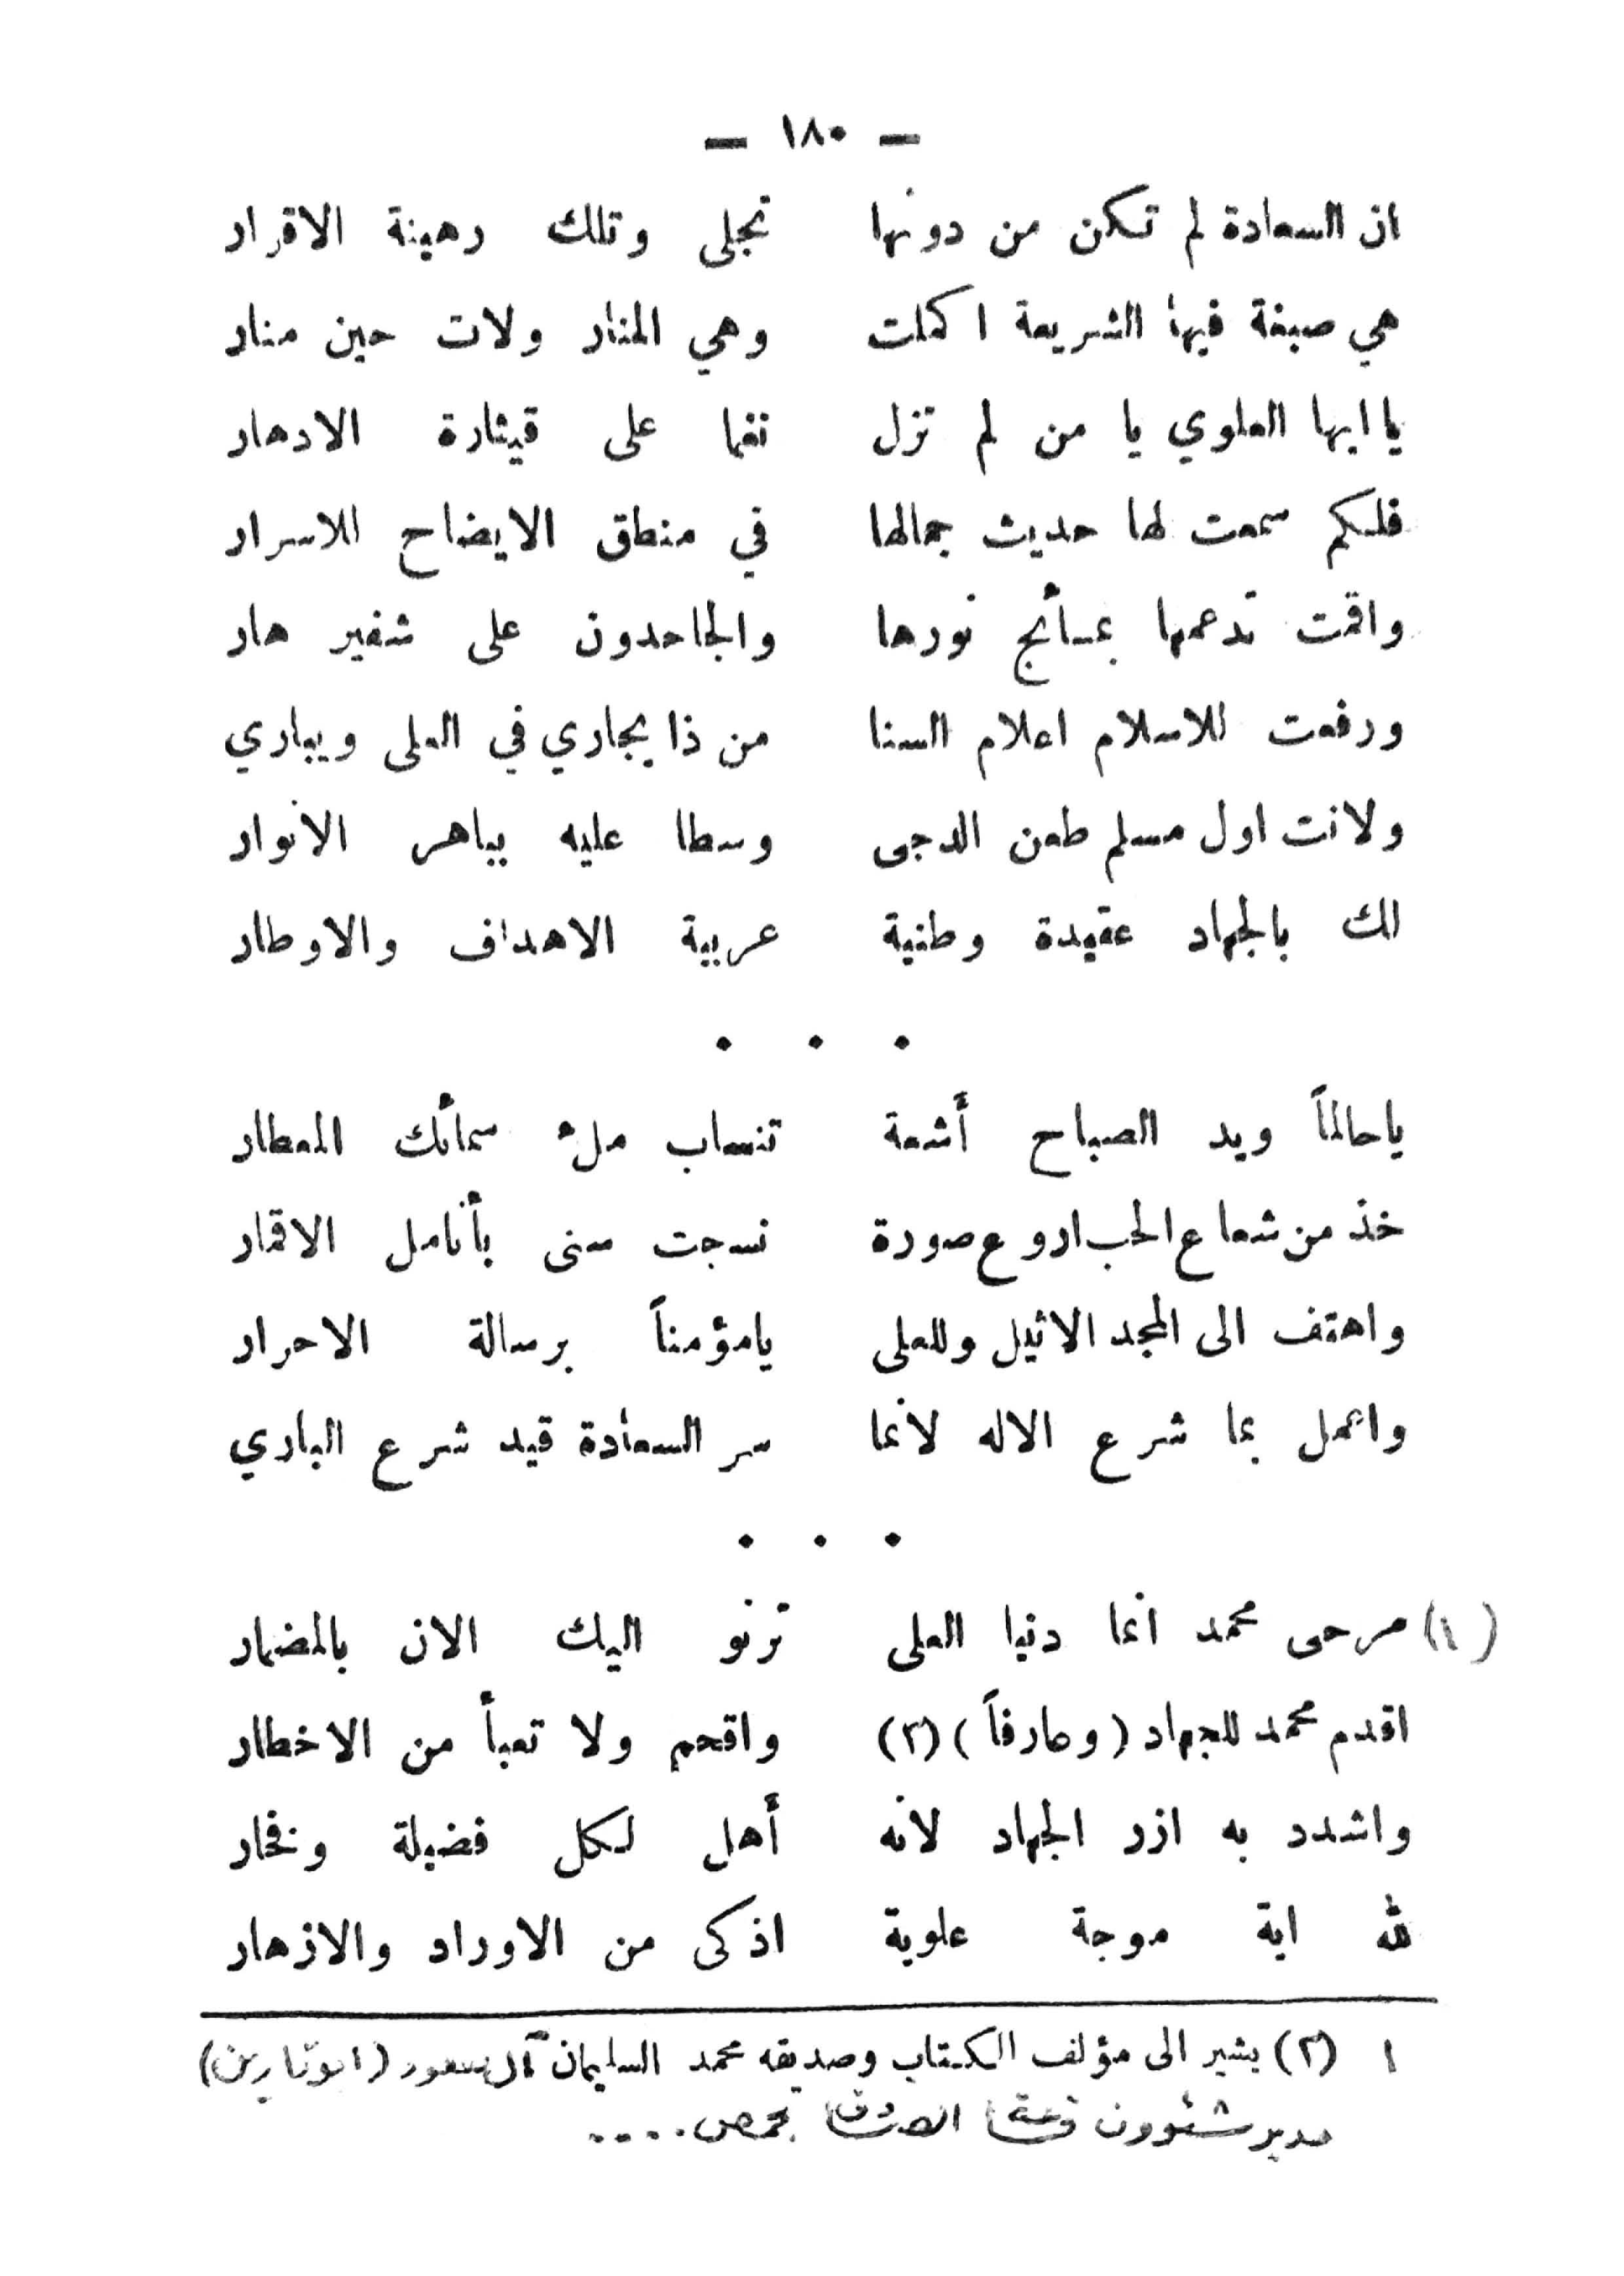 — ١٨٠ —
ان السعادة لم تكن من دونها تجلى وتلك رهينة الاقرار
هي صبغة فيها الشريعة اكملت وهي المنار ولات حين منار
يا ايها العلوي يا من لم تزل نغما على قيثارة الادهار
فلكم سمعت لها حديث جمالها في منطق الايضاح للاسرار
واقمت تدعمها بمسأئج نورها والجاحدون على شفير هار
ورفعت للاسلام اعلام السنا من ذا يجاري في العلى ويباري
ولانت اول مسلم طعن الدجى وسطا عليه بباهر الانوار
لك بالجهاد عقيدة وطنية عربية الاهداف والاوطار
. . .
ياحالماً ويد الصباح أشعة تنساب ملء سمأئك المعطار
خذ من شعاع الحب اروع صورة نسجت سنى بأنامل الاقمار
واهتف الى المجد الاثيل وللعلى يامؤمناً برسالة الاحرار
واعمل بما شرع الاله لانما سر السعادة قيد شرع الباري
. . .
(١) مرحى محمد انما دنيا العلى ترنو اليك الان بالمضمار
اقدم محمد للجهاد (وعارفاً) (٢) واقحم ولا تعبأ من الاخطار
واشدد به ازر الجهاد لانه أهل لكل فضيلة وفخار
لله اية موجة علوية اذكى من الاوراد والازهار
١ (٢) يشير الى مؤلف الكتاب وصديقه محمد السليمان آل سعور
مدير شئوون بحمص....